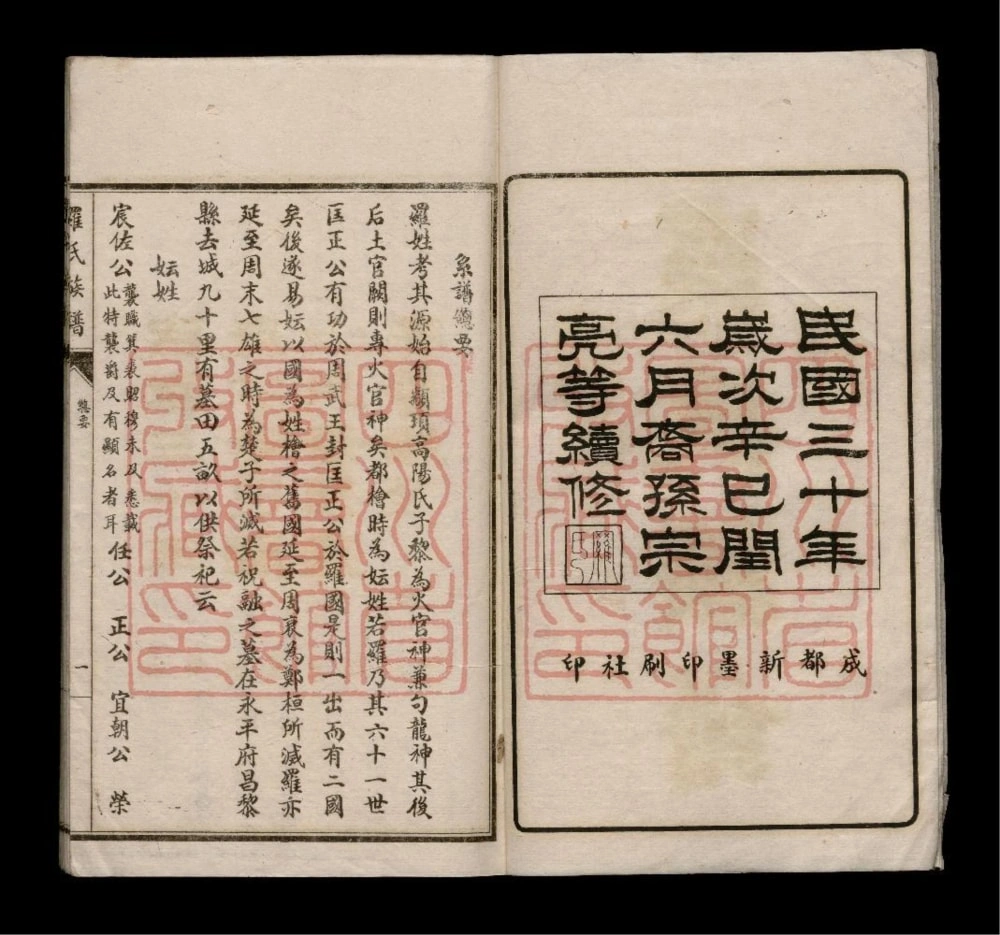 民國三十年
歲次辛巳閏
六月裔孫宗
亮等續修
羅氏
成都新墨印刷社印
系譜總要
羅姓考其源始自顓頊高陽氏子黎為火官神兼勾龍神其後
后土官闕則專火官神矣都檜時為妘姓若羅乃其六十一世
匡正公有功於周武王封匡正公於羅國是則一出而有二國
矣後遂易妘以國為姓檜之舊國延至周衰為鄭桓所滅羅亦
延至周末七雄之時為楚子所滅若祝融之墓在永平府昌黎
縣去城九十里有墓田五畝以供祭祀云
妘姓
宸佐公 襲職箕裘昭穆未及悉載
此特襲爵及有顯名者耳 任公 正公 宜朝公 榮
羅氏族譜 總要 一